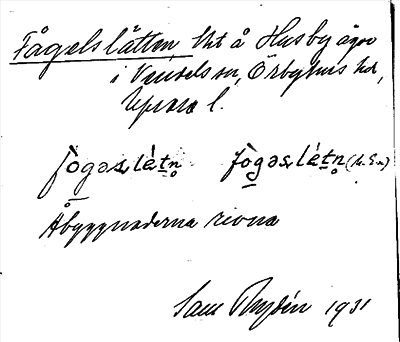 Fågelslätten, lht å Husby ägor
i Vendels sn, Örbyhus hd,
Upsala l.
fògəsˌlètn̥ fògəsˌlètn̥ (h. S-n)
Åbyggnaderna revna
Sam Rydén 1931